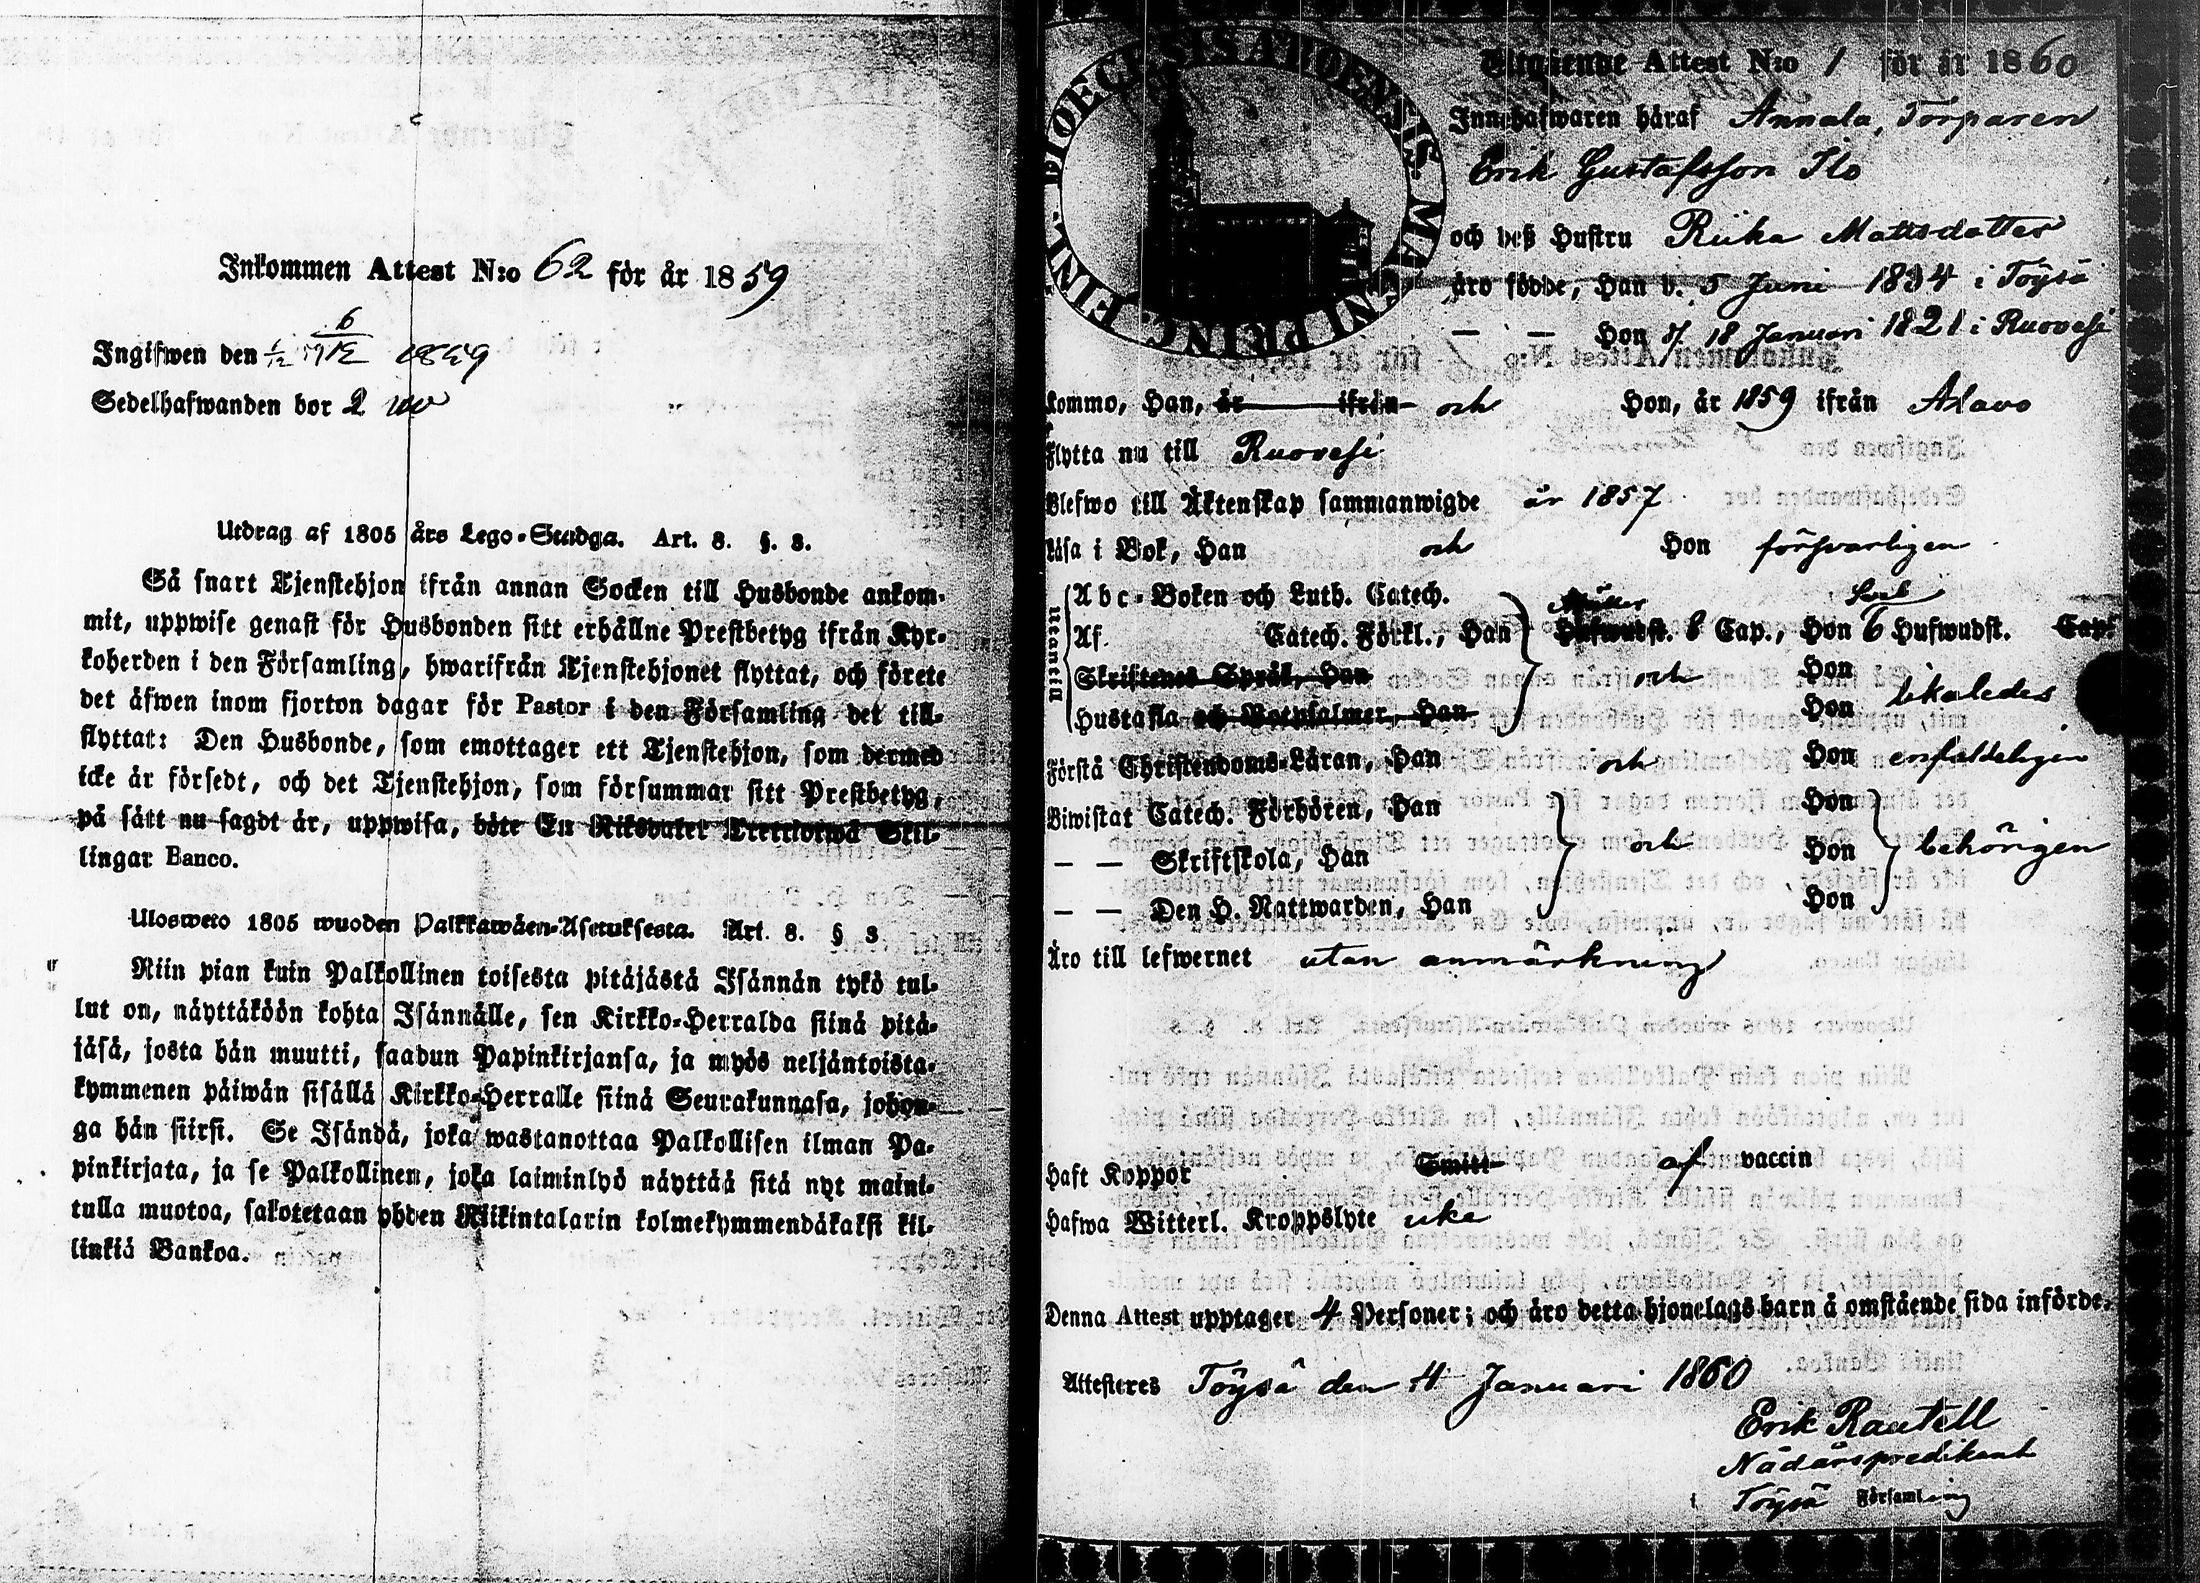 Inkommen Attest N:o 62 för år 1859
6
Ingifwen den 1859
Sedelhafwanden bor 2
Utdrag af 1805 års Lego-Stadga. Art. 8. §. 8.
Så snart Tjenstehjon ifrån annan Socken till Husbonde ankom-
mit, uppwise genast för Husbonden sitt erhållne Prestbetyg ifrån Kyr-
koherden i den Församling, hwarifrån Tjenstehjonet flyttat, och förete
det äfwen inom fjorton dagar för Pastor i den Församling det till-
flyttat: Den Husbonde, som emottager ett Tjenstehjon, som dermed
icke är försedt, och det Tjenstehjon, som försummar sitt Prestbetyg,
på sätt nu sagdt är, uppwisa, böte En Riksdaler Trettiotwå Skil-
lingar Banco.
Ulosweto 1805 wuoden Palkkawäen-Asetuksesta. Art. 8. § 3
Niin pian kuin Palkollinen toisesta pitäjästä Isännän tykö tul-
lut on, näyttäköön kohta Isännälle, sen Kirkko-Herralda siinä pitä-
jäsä, josta hän muutti, saadun Papinkirjansa, ja myös neljäntoista-
kymmenen päiwän sisällä Kirkko-Herralle siinä Seurakunnasa, johon-
ga hän siirsi. Se Isändä, joka wastanottaa Palkollisen ilman Pa-
pinkirjata, ja se Palkollinen, joka laiminlyö näyttää sitä nyt maini-
tulla muotoa, sakotetaan yhden Riikintalarin kolmekymmendäkaksi kil-
linkiä Bankoa.
DIOECESIS ABOENSIS. MAGNI PRINC. FINL.
Utgående Attest N:o 1 för år 1860
Innehafwaren häraf Annala, Torparen
Erik Gustafsson Ilo
och deß Hustru Riika Mattsdotter
äro födde, Han d. 5 Juni 1834 i Töysä
— — Hon d. 18 Januari 1821 i Ruovesi
Kommo, Han, år ifrån och Hon, år 1859 ifrån Alavo
Flytta nu till Ruovesi
Blefwo till Äktenskap sammanwigde år 1857
Läsa i Bok, Han och Hon försvarligen
Utantill
Abc-Boken och Luth. Catech.
Af. Catech. Förkl., Han Hufwudst. 6 Cap., Hon 6 Hufwudst. Cap.
Skriftenes Språk, Han och Hon
Hustafla och Botpsalmer, Han Hon likaledes
Förstå Christendoms-Läran, Han och Hon enfaldeligen
Biwistat Catech. Förhören, Han Hon
— — Skriftskola, Han och Hon behörigen
— — Den H. Nattwarden, Han Hon
Äro till lefwernet utan anmärkning
Haft Koppor Smitt- af vaccin
Hafwa Witterl. Kroppslyte icke
Denna Attest upptager 4 Personer; och äro detta hjonelags barn å omstående sida införde.
Attesteres Töysä den 4 Januari 1860
Erik Rautell
Nådårspredikant
i Töysä Församling